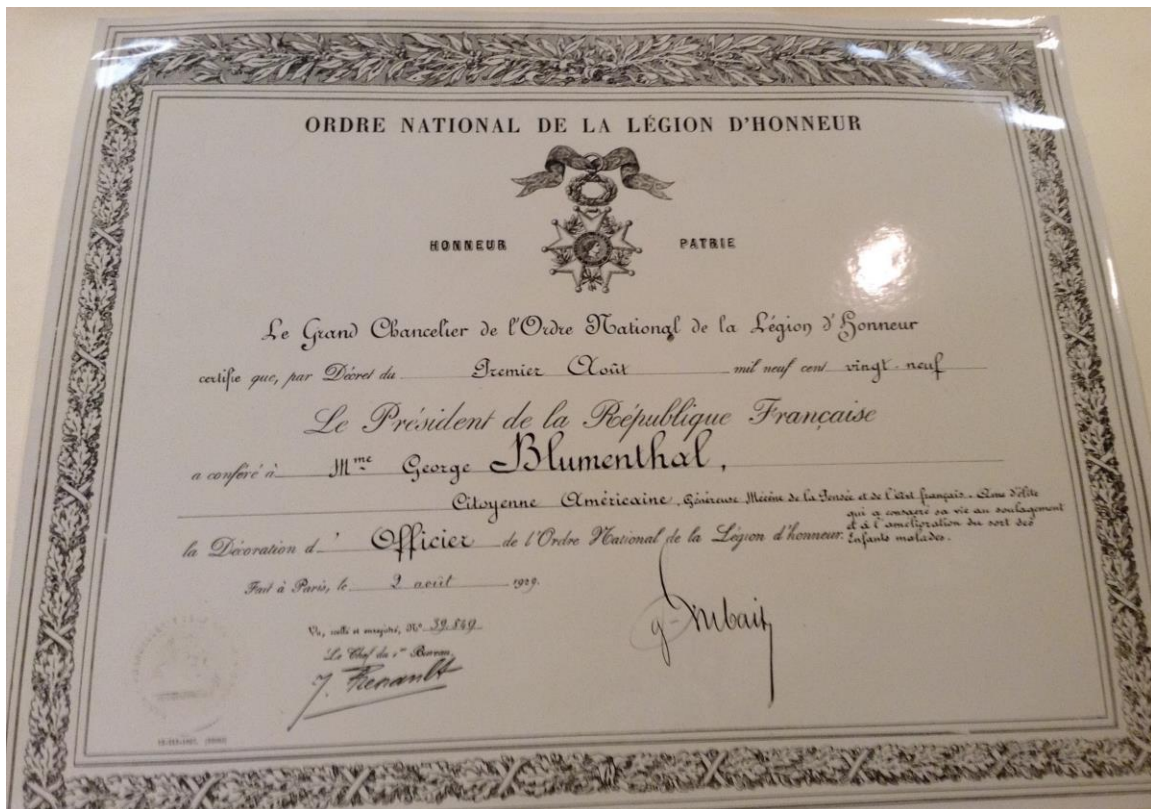 ORDRE NATIONAL DE LA LÉGION D'HONNEUR
HONNEUR PATRIE
Le Grand Chancelier de l'Ordre National de la Légion d'Honneur
certifie que, par Décret du Premier Août mil neuf cent vingt-neuf
Le Président de la République Française
a conféré à Mme George Blumenthal,
Citoyenne Américaine, Généreuse Mécène de la Pensée et de l'Art français. Ame d'élite
qui a consacré sa vie au soulagement
et à l'amélioration du sort des
Enfants malades.
la Décoration d' Officier de l'Ordre National de la Légion d'honneur.
Fait à Paris, le 2 août 1929.
Vu, scellé et enregistré, No 39.849
Le Chef du 1er Bureau,
J. Renault
g. Dubail